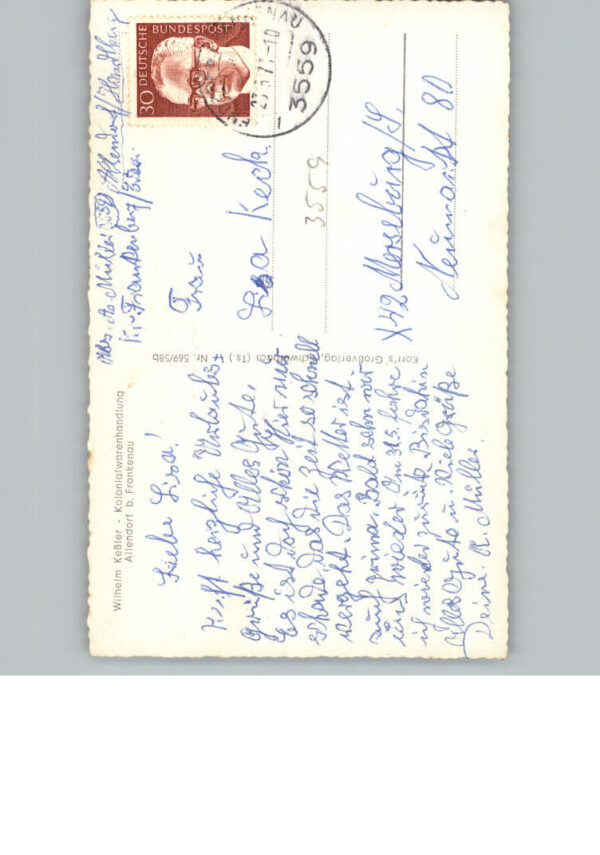 Wilhelm Keßler - Kolonialwarenhandlung
Allendorf b. Frankenau
Liebe Lisa!
herzliche Urlaubs
Grüße und Alles Gute.
Es ist doch schön hier nur
schade, das die Zeit so schnell
vergeht. Das Wetter ist
auch prima. Bald sehn wir
uns wieder. Am 31.5. fahre
ich wieder zurück. Bis dahin
Alles Gute u. viele Grüße
Deine A. Müller.
Korr's Großverlag, Schwalbach (Ts.) 17 Nr. 569/58b
Abs. A. Müller 3559 Allendorf
Kr. Frankenberg/Eder
30 DEUTSCHE BUNDESPOST
3559
3559
Frau
Lisa Keck
X 42 Merseburg/S.
Neumarkt 80